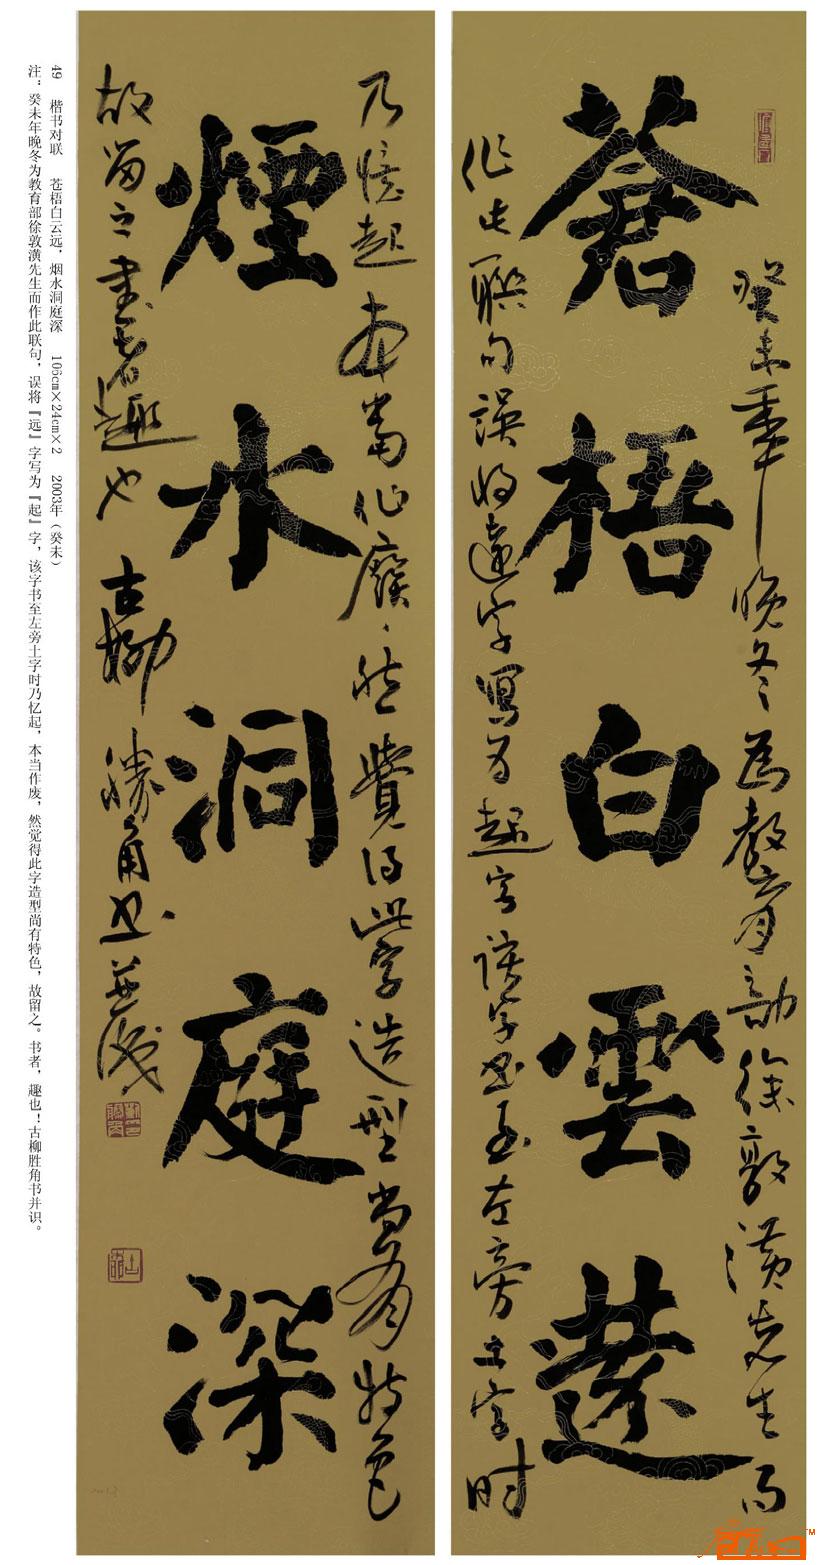 癸未年晚冬為教育部徐敦潢先生而
蒼梧白雲遠
作此聯句誤将遠字寫为起字該字书至左旁土字时
乃憶起本當作廢、然覺得此字造型尚有特色
煙水洞庭深
故留之書者趣也古柳勝角书並識
49 楷书对联 苍梧白云远，烟水洞庭深 106cm×24cm×2 2003年（癸未）
注：癸未年晚冬为教育部徐敦潢先生而作此联句，误将『远』字写为『起』字，该字书至左旁土字时乃忆起，本当作废，然觉得此字造型尚有特色，故留之。书者，趣也！古柳胜角书并识。